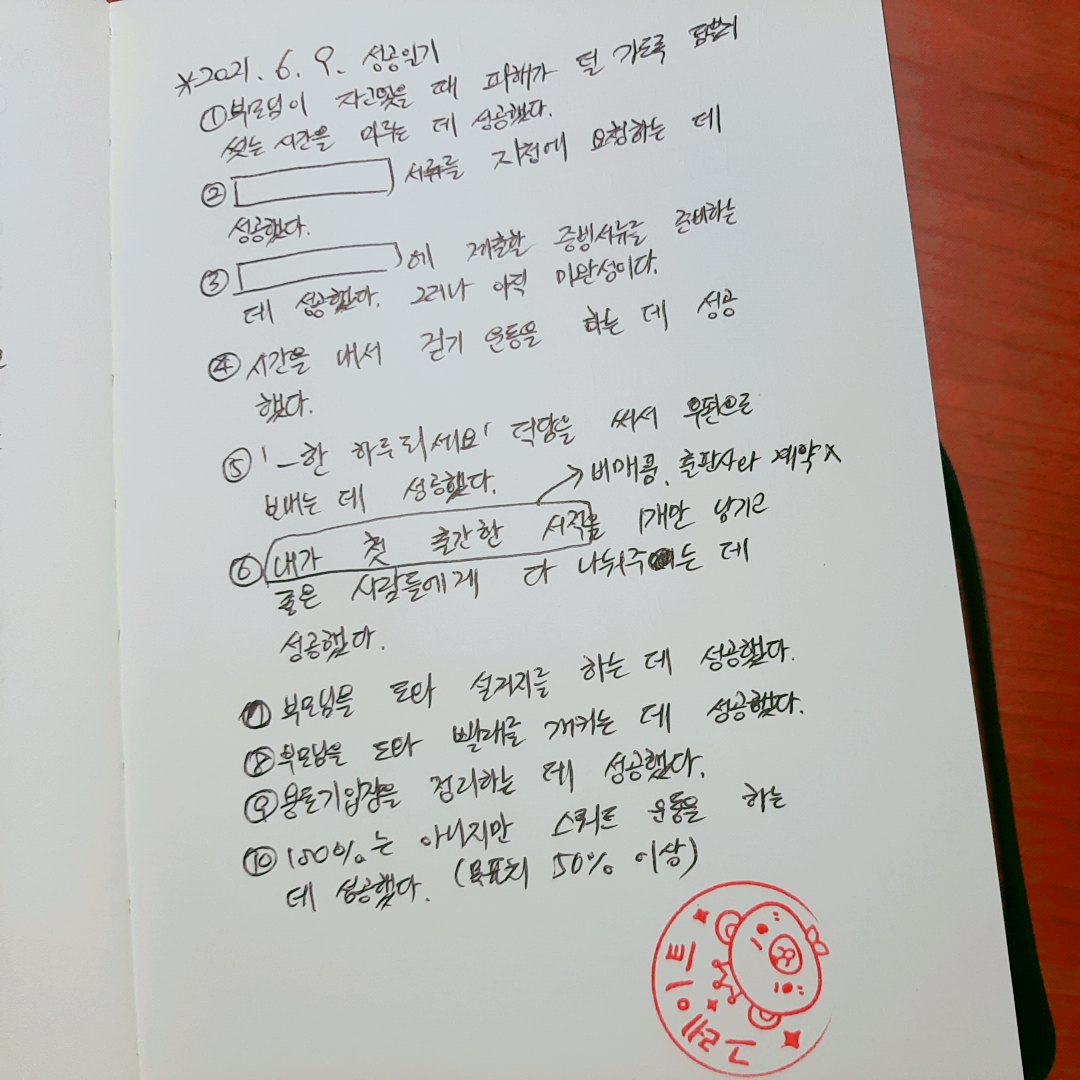 *2021. 6. 9. 성공일기
① 부모님이 자고있을 때 피해가 덜 가도록
씻는 시간을 미루는 데 성공했다.
② 서류를 지점에 요청하는 데
성공했다.
③ 에 제출할 증빙서류를 준비하는
데 성공했다. 그러나 아직 미완성이다.
④ 시간을 내서 걷기 운동을 하는 데 성공
했다.
⑤ '_한 하루 되세요' 덕담을 써서 우편으로
보내는 데 성공했다.
→ 비매품, 출판사와 계약x
⑥ 내가 첫 출간한 서적을 1개만 남기고
좋은 사람들에게 다 나눠주는 데
성공했다.
⑦ 부모님을 도와 설거지를 하는 데 성공했다.
⑧ 부모님을 도와 빨래를 개키는 데 성공했다.
⑨ 용돈기입장을 정리하는 데 성공했다.
⑩ 100%는 아니지만 스쿼트 운동을 하는
데 성공했다. (목표치 50% 이상)
그레이트